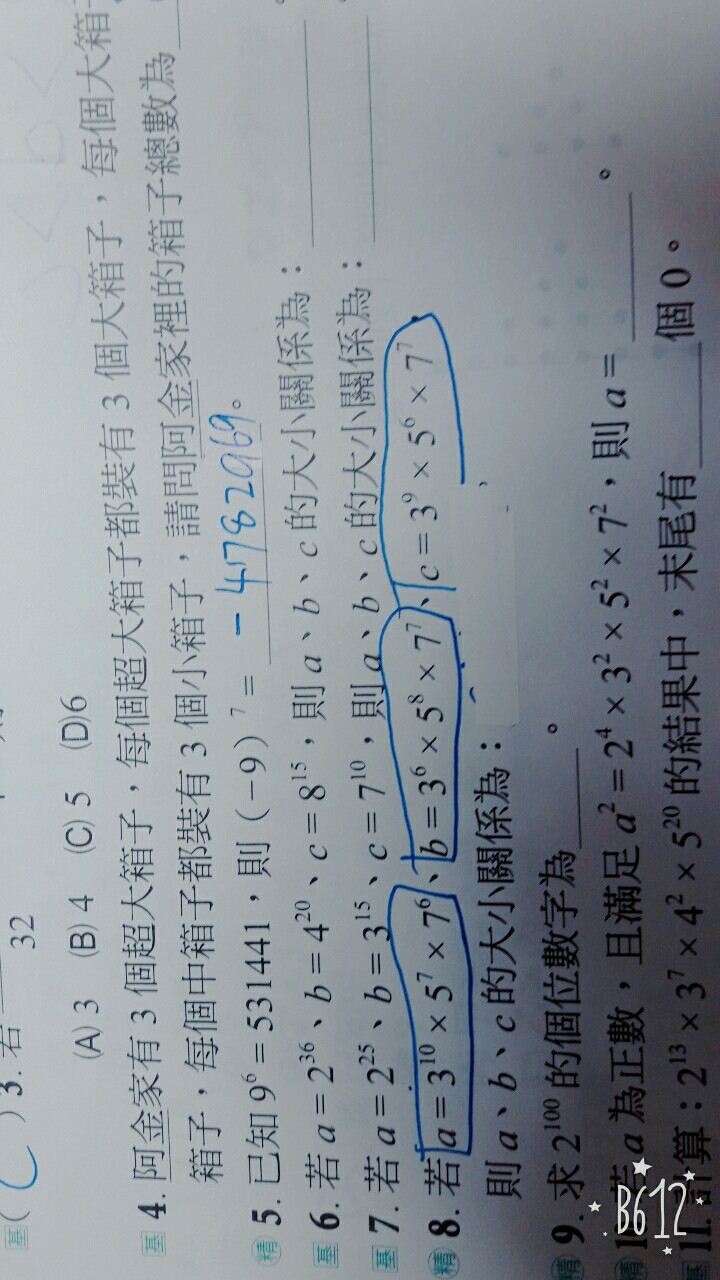 基( C )3. 若
32
(A) 3 (B) 4 (C) 5 (D)6
基 4. 阿金家有 3 個超大箱子，每個超大箱子都裝有 3 個大箱子，每個大箱
箱子，每個中箱子都裝有 3 個小箱子，請問阿金家裡的箱子總數為
精 5. 已知 9⁶＝531441，則（−9）⁷＝ −4782969。
基 6. 若 a＝2³⁶、b＝4²⁰、c＝8¹⁵，則 a、b、c 的大小關係為：
基 7. 若 a＝2²⁵、b＝3¹⁵、c＝7¹⁰，則 a、b、c 的大小關係為：
精 8. 若 a＝3¹⁰×5⁷×7⁶、b＝3⁶×5⁸×7⁷、c＝3⁹×5⁶×7⁷，
則 a、b、c 的大小關係為：
精 9. 求 2¹⁰⁰ 的個位數字為 。
若 a 為正數，且滿足 a²＝2⁴×3²×5²×7²，則 a＝ 。
基 11. 計算：2¹³×3⁷×4²×5²⁰ 的結果中，末尾有 個 0。
B612